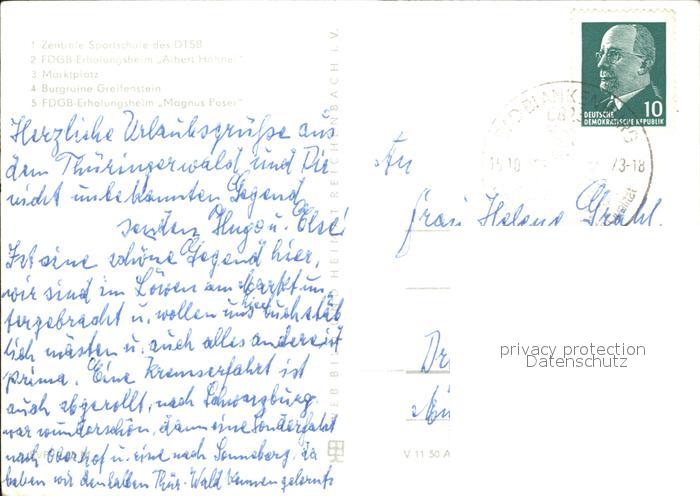 1 Zentrale Sportschule des DTSB
2 FDGB-Erholungsheim „Albert Hähnel"
3 Marktplatz
4 Burgruine Greifenstein
5 FDGB-Erholungsheim „Magnus Poser"
Herzliche Urlaubsgrüße aus
dem Thüringerwald und Die
nicht unbekannten Gegend
senden Hugo u. Else!
Ist eine schöne Gegend hier,
wir sind im Löwen am Markt un
tergebracht u. wollen uns hier buchstäb
lich mästen u. auch alles andere ist
prima. Eine Kremserfahrt ist
auch abgerollt, nach Schwarzburg
war wunderschön, dann eine Sonderfahrt
nach Oberhof u. eine nach Sonneberg, da
haben wir den halben Thür. Wald kennengelernt
REICHENBACH I. V.
DEUTSCHE
DEMOKRATISCHE REPUBLIK
10
BAD BLANKENBURG
15.10
73-18
An
Frau Helene Grahl.
Dr
privacy protection
Datenschutz
V 11 50 A